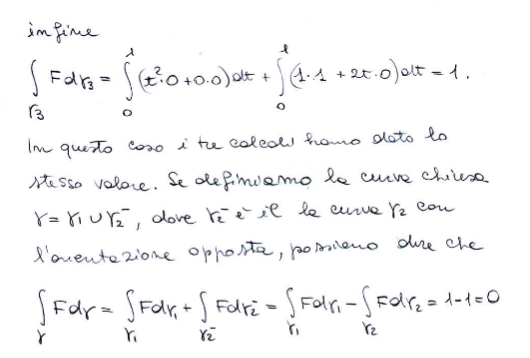 infine
∫_{γ3} Fdγ3 = ∫_0^1 (t²·0+0·0)dt + ∫_0^1 (1·1 + 2t·0)dt = 1.
In questo caso i tre calcoli hanno dato lo
stesso valore. Se definiamo la curva chiusa
γ = γ1 ∪ γ2⁻, dove γ2⁻ è il la curva γ2 con
l'orientazione opposta, possiamo dire che
∫_γ Fdγ = ∫_{γ1} Fdγ1 + ∫_{γ2⁻} Fdγ2⁻ = ∫_{γ1} Fdγ1 − ∫_{γ2} Fdγ2 = 1−1=0